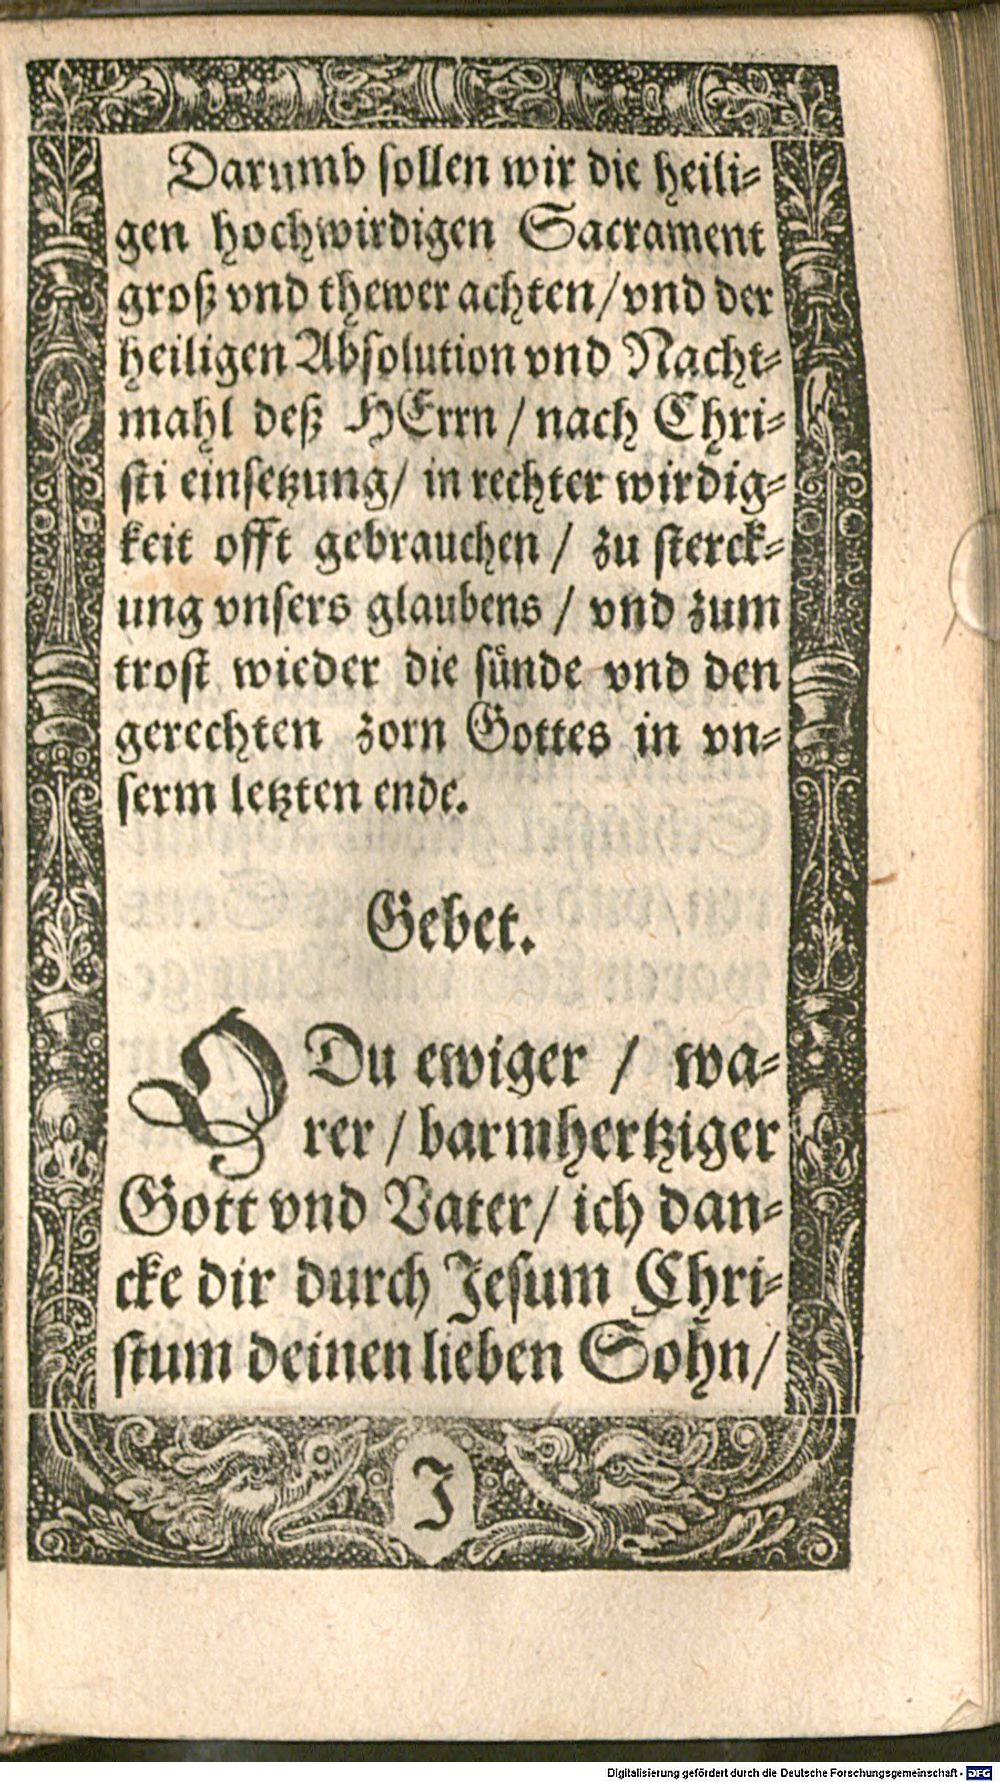 Darumb sollen wir die heili-
gen hochwirdigen Sacrament
groß vnd thewer achten/ vnd der
heiligen Absolution vnd Nacht-
mahl deß HErrn / nach Chri-
sti einsetzung/ in rechter wirdig-
keit offt gebrauchen / zu sterck-
ung vnsers glaubens / vnd zum
trost wieder die sünde vnd den
gerechten zorn Gottes in vn-
serm letzten ende.
Gebet.
O Du ewiger / wa-
rer / barmhertziger
Gott vnd Vater/ ich dan-
cke dir durch Jesum Chri-
stum deinen lieben Sohn/
J
Digitalisierung gefördert durch die Deutsche Forschungsgemeinschaft - DFG